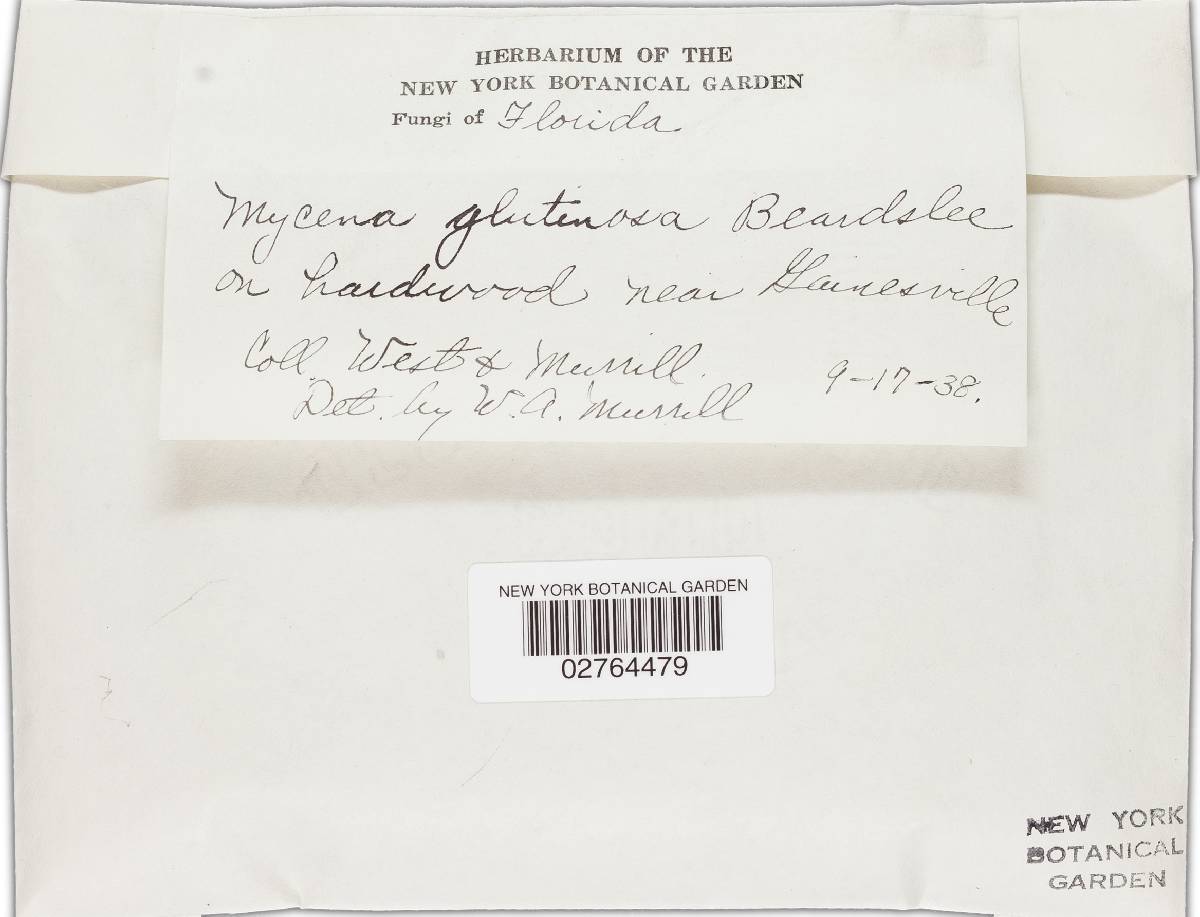 HERBARIUM OF THE
NEW YORK BOTANICAL GARDEN
Fungi of Florida
Mycena glutinosa Beardslee
on hardwood near Gainesville
Coll. West & Murrill.
9-17-38.
Det. by W. A. Murrill
NEW YORK BOTANICAL GARDEN
02764479
NEW YORK
BOTANICAL
GARDEN